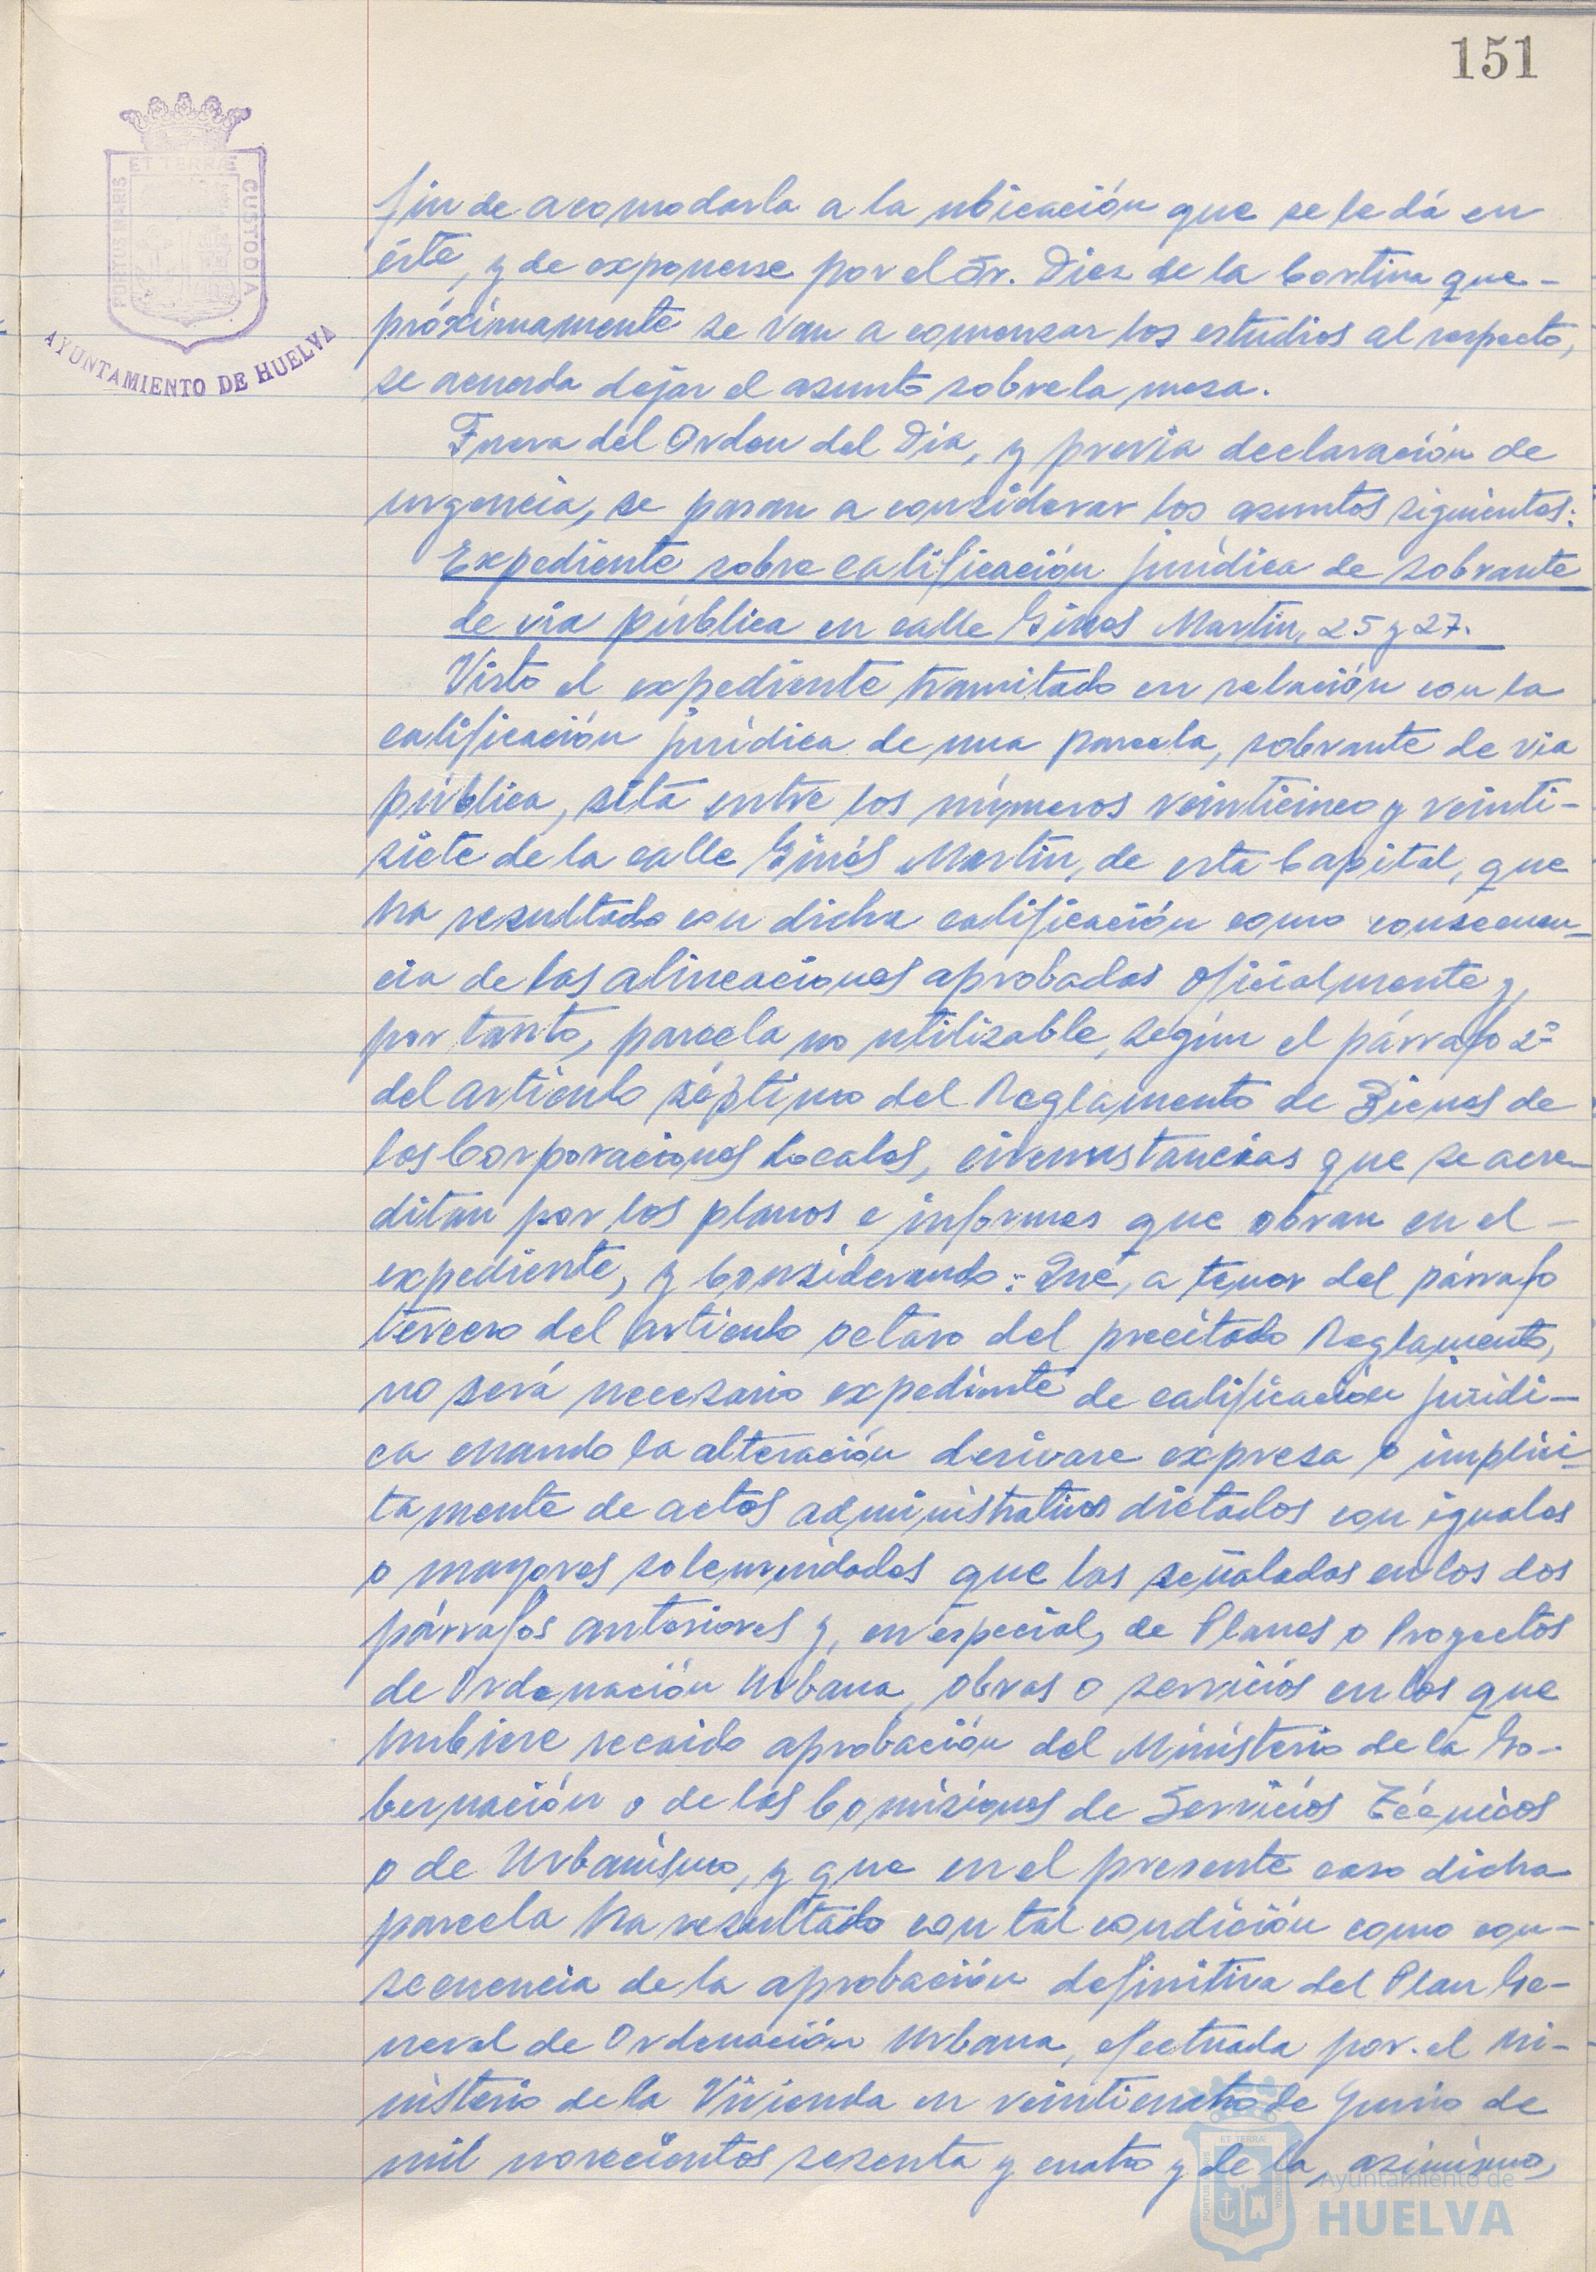 151
ET TERRÆ
PORTUS MARIS
CUSTODIA
AYUNTAMIENTO DE HUELVA
fin de acomodarla a la ubicación que se le dá en
éste, y de exponerse por el Sr. Diez de la Cortina que-
próximamente se van a comenzar los estudios al respecto,
se acuerda dejar el asunto sobre la mesa.
Fuera del Orden del Dia, y previa declaración de
urgencia, se pasan a considerar los asuntos siguientes:
Expediente sobre calificación jurídica de sobrante
de via pública en calle Ginés Martin, 25 y 27.
Visto el expediente tramitado en relación con la
calificación jurídica de una parcela, sobrante de via
pública, sita entre los números veinticinco y veinti-
siete de la calle Ginés Martin, de esta Capital, que
ha resultado con dicha calificación como consecuen-
cia de las alineaciones aprobadas oficialmente y,
por tanto, parcela no utilizable, según el párrafo 2º
del artículo séptimo del Reglamento de Bienes de
las Corporaciones Locales, circunstancias que se acre-
ditan por los planos e informes que obran en el-
expediente, y Considerando: Que, a tenor del párrafo
tercero del artículo octavo del precitado Reglamento,
no será necesario expediente de calificación jurídi-
ca cuando la alteración derivare expresa o implíci-
tamente de actos administrativos dictados con iguales
o mayores solemnidades que las señaladas en los dos
párrafos anteriores y, en especial, de Planes o Proyectos
de Ordenación Urbana, obras o servicios en los que
hubiere recaido aprobación del Ministerio de la Go-
bernación o de las Comisiones de Servicios Técnicos
o de Urbanismo, y que en el presente caso dicha
parcela ha resultado con tal condición como con-
secuencia de la aprobación definitiva del Plan Ge-
neral de Ordenación Urbana, efectuada por el Mi-
nisterio de la Vivienda en veinticuatro de Junio de
mil novecientos sesenta y cuatro y de la, asimismo,
Ayuntamiento de
HUELVA